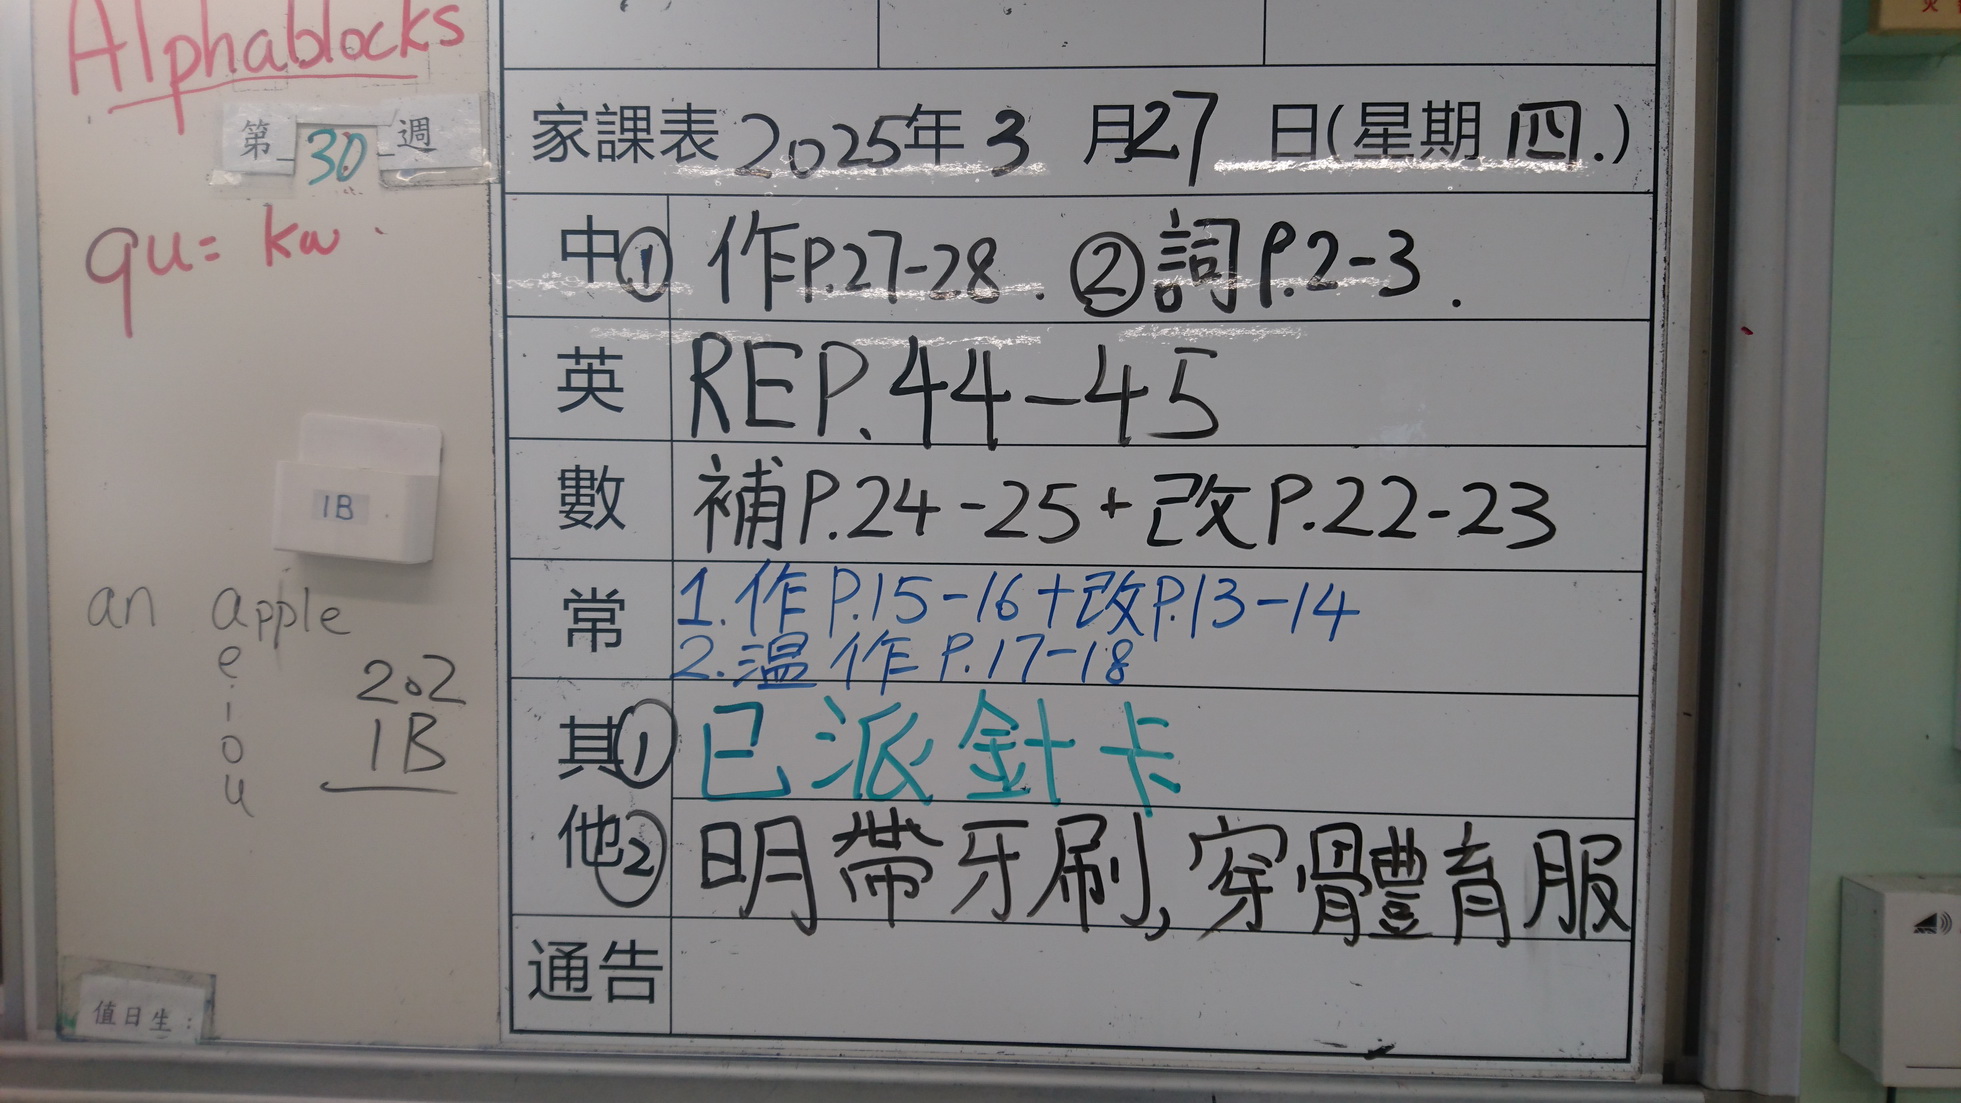 Alphablocks
第 30 週
qu = kw
1B
an apple
e
i
o
u
202
1B
值日生：
家課表 2025年 3 月 27 日(星期 四.)
中 ① 作P.27-28. ② 詞P.2-3.
英 REP.44-45
數 補P.24-25+改P.22-23
常 1. 作P.15-16+改P.13-14
2. 溫作P.17-18
其他 ① 已派針卡
② 明帶牙刷, 穿體育服
通告